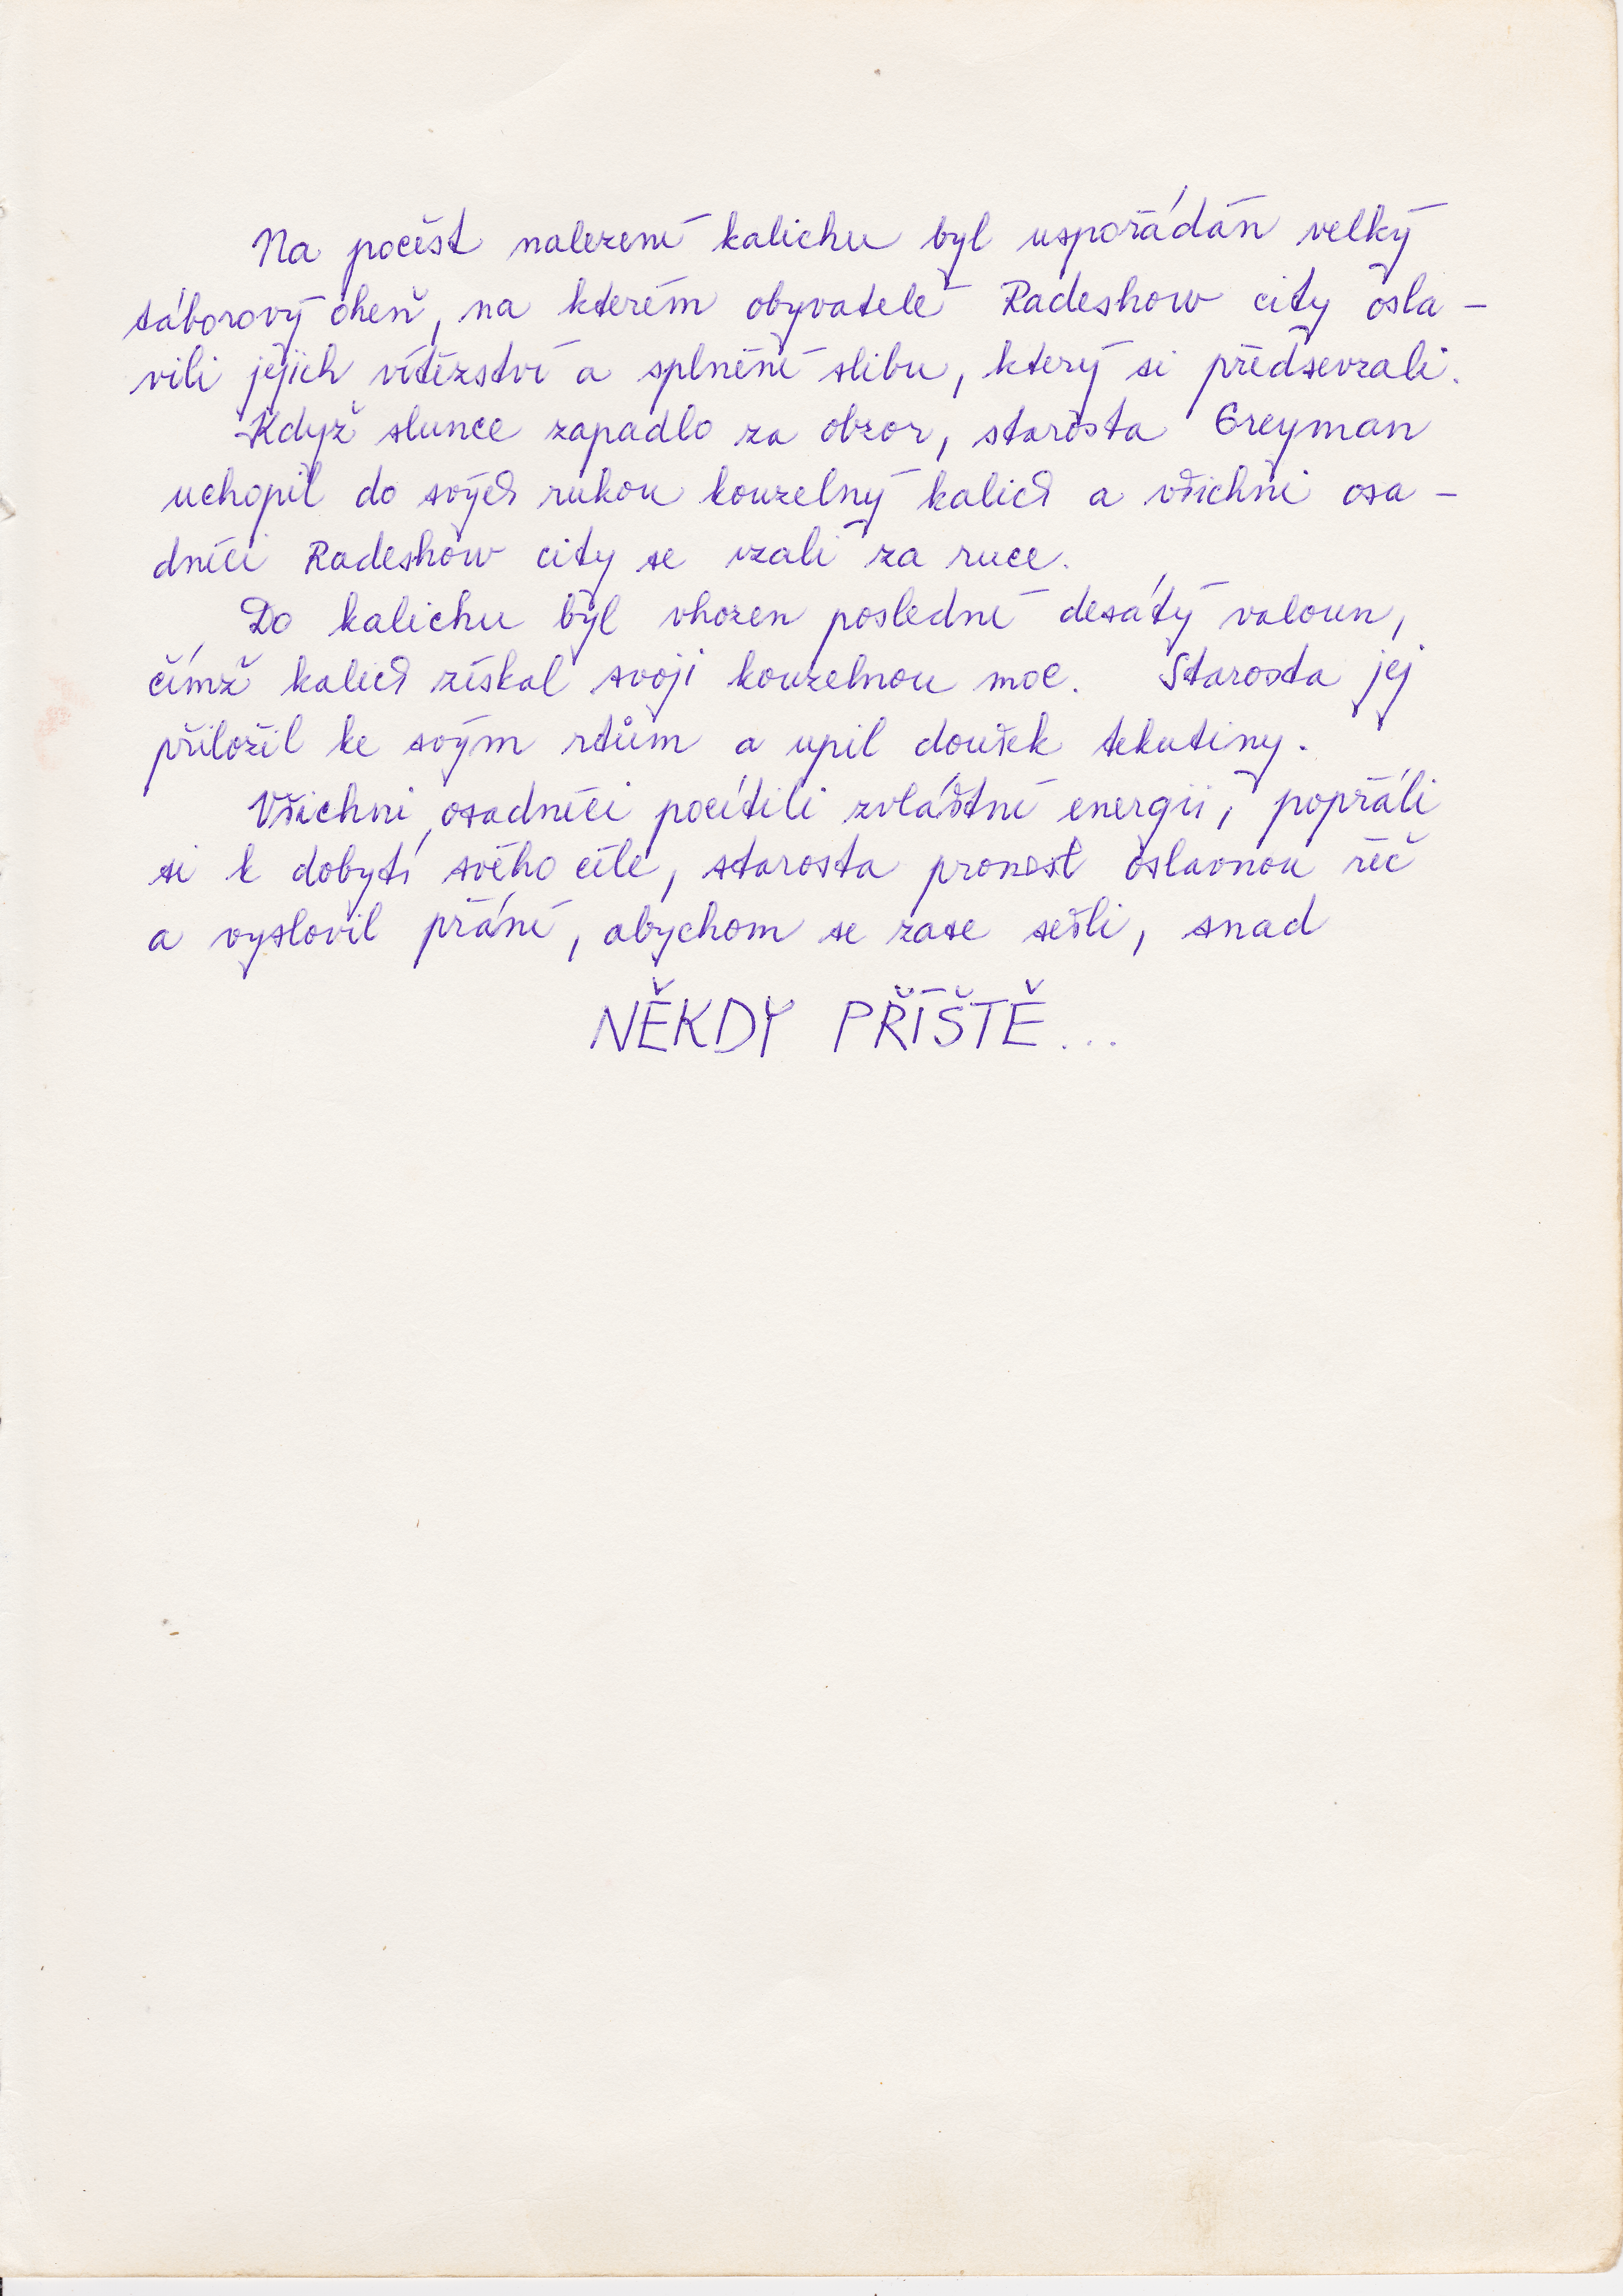 Na počest nalezení kalichu byl uspořádán velký
táborový oheň, na kterém obyvatelé Radeshow city osla-
vili jejich vítězství a splnění slibu, který si předsevzali.
Když slunce zapadlo za obzor, starosta Greyman
uchopil do svých rukou kouzelný kalich a všichni osa-
dníci Radeshow city se vzali za ruce.
Do kalichu byl vhozen poslední desátý valoun,
čímž kalich získal svoji kouzelnou moc. Starosta jej
přiložil ke svým rtům a upil doušek tekutiny.
Všichni osadníci pocítili zvláštní energii, popřáli
si k dobytí svého cíle, starosta pronesl oslavnou řeč
a vyslovil přání, abychom se zase sešli, snad
NĚKDY PŘÍŠTĚ...